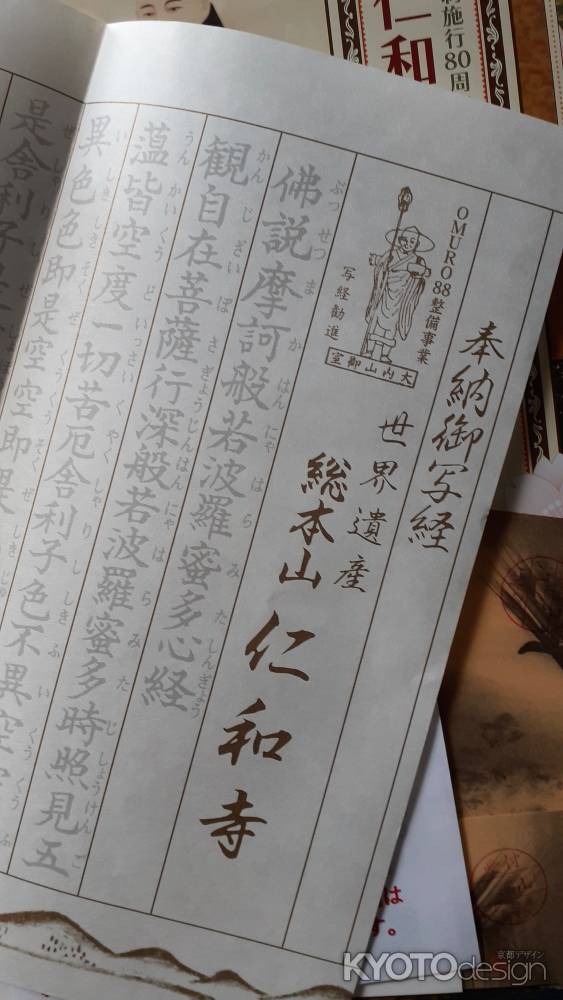 奉納御写経
OMURO88整備事業
写経勧進
大内山御室
世界遺産
総本山
仁和寺
佛説摩訶般若波羅蜜多心経
ぶっせつまかはんにゃはらみたしんぎょう
観自在菩薩行深般若波羅蜜多時照見五
かんじざいぼさぎょうじんはんにゃはらみたじしょうけんご
蘊皆空度一切苦厄舎利子色不異空空
うんかいくうどいっさいくやくしゃりししきふいくうくうふ
異色色即是空空即是
いしきしきそくぜくうくうそくぜしきじゅ
是舎利子
ぜしゃりし
施行80周
仁和
は
す。
京都デザイン
KYOTOdesign